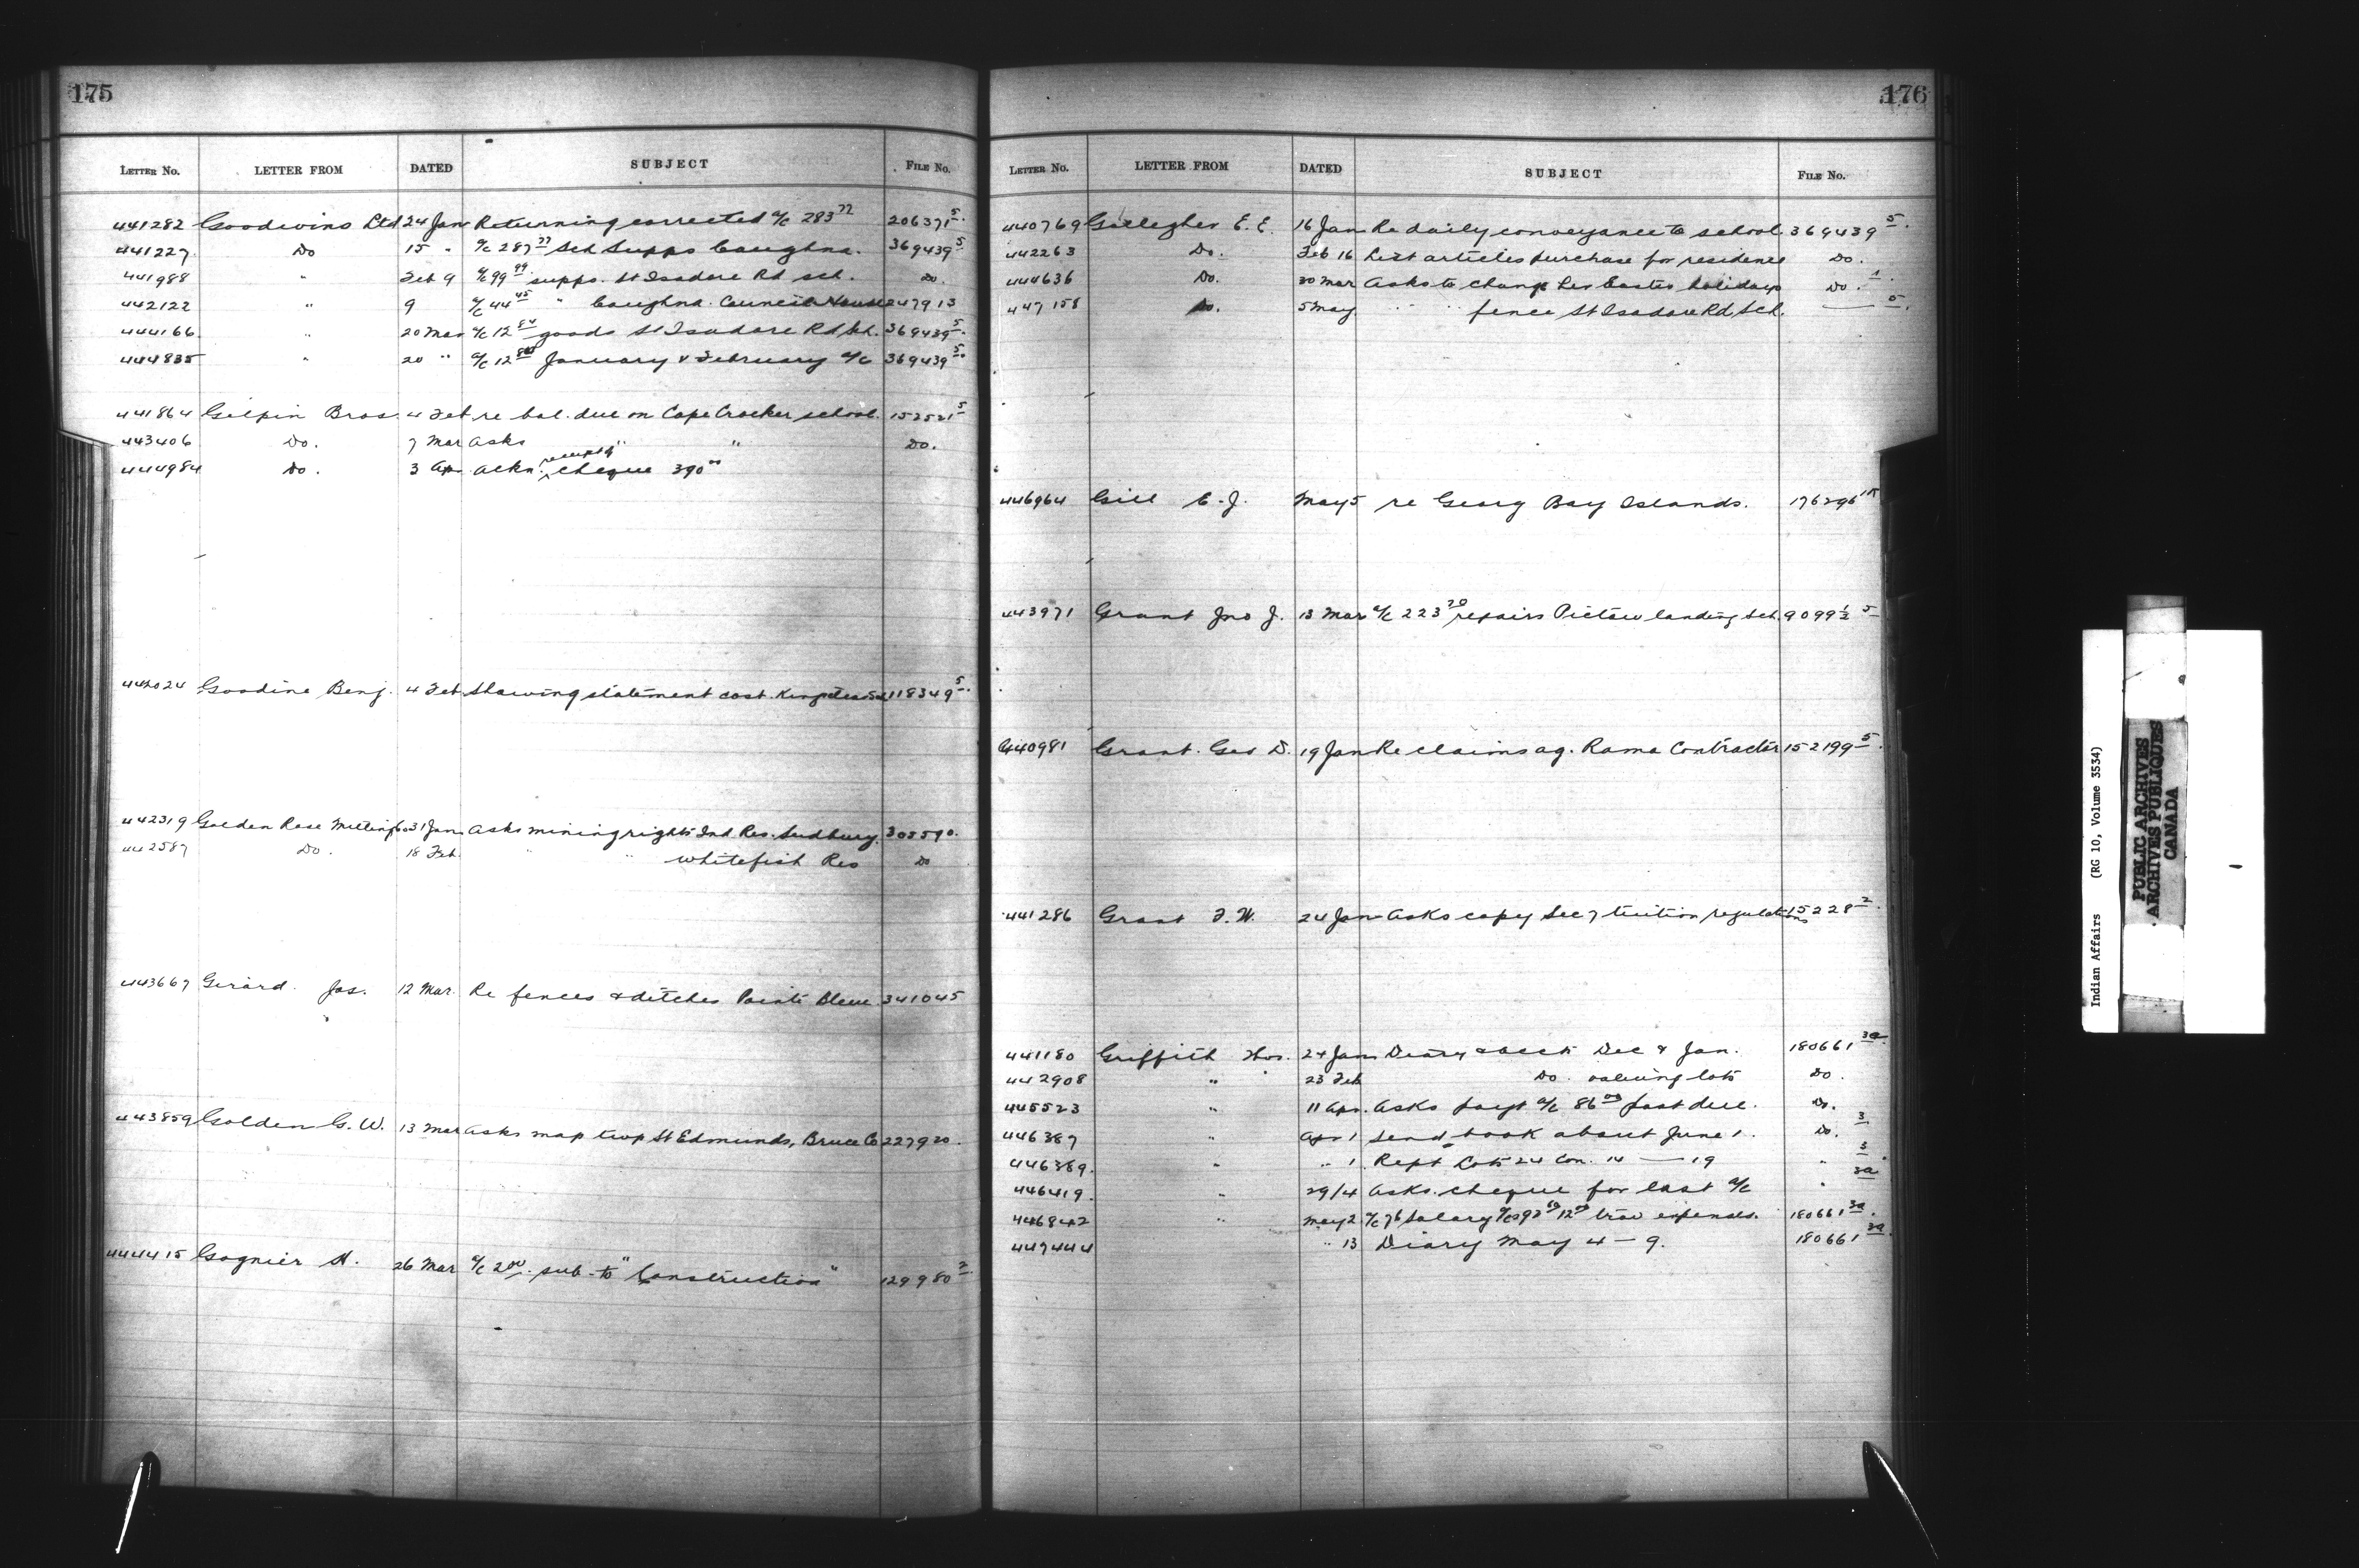 175
LETTER NO. LETTER FROM DATED SUBJECT FILE NO.
441282 Goodwins Ltd 24 Jan Returning corrected a/c 283 77 206371 5.
441227 Do 15 " a/c 287 77 Sch Supps Caughna. 369439 5
441988 " Feb 9 a/c 99 99 supps. St Isadore Rd sch. Do.
442122 " 9 a/c 44 45 " Caughna. Council House 247913
444166 " 20 Mar a/c 12 84 goods St Isadore Rd Sch. 369439 5.
444835 " 20 " a/c 12 January & February a/c 369439 5.
441864 Gilpin Bros. 4 Feb re bal. due on Cape Croker school. 152521 5
443406 Do. 7 Mar Asks " " Do.
444984 Do. 3 Ap. Ackn. receipt of cheque 390 00
442024 Goodine Benj. 4 Feb Showing statement cost Kingsclear Sch 118349 5.
442319 Golden Rose Mining Co 31 Jan Asks mining rights Ind Res. Sudbury. 303590.
442587 Do. 18 Feb. " " Whitefish Res Do
443667 Girard. Jos. 12 Mar. Re fences & ditches Pointe Bleue 341045
443859 Golden G. W. 13 Mar Asks map twp St Edmunds, Bruce Co 227920.
444415 Gagnier H. 26 Mar a/c 2 00. sub. to "Construction" 129980 2.
176
LETTER NO. LETTER FROM DATED SUBJECT FILE NO.
440769 Gallegher E. E. 16 Jan Re daily conveyance to school. 369439 5.
442263 Do. Feb 16 List articles purchase for residence Do.
444636 Do. 30 Mar Asks to change her Easter holidays Do. 1.
447158 Do. 5 May " " fence St Isadore Rd Sch. — 5.
446964 Gill C. J. May 5 re Georg Bay Islands. 176296
443971 Grant Jno J. 13 Mar a/c 223 70 repairs Pictou landing Sch. 9099 1/2 5
440981 Grant. Geo D. 19 Jan Re claims ag. Rama Contractor 152199 5.
441286 Grant F. W. 24 Jan Asks copy Sec 7 tuition regulations 15228 2.
441180 Griffith Thos. 24 Jan Diary & accts Dec & Jan. 180661 3a.
442908 " 23 Feb Do. valuing lots Do.
445523 " 11 Apr. Asks payt a/c 86 00 past due. Do.
446387 " Apr 1 Send book about June 1. Do. 3
446389. " " 1 Rept Lots 24 Con. 14 — 19 " 3
446419. " 29/4 Asks cheque for last a/c " 3a
446842 " May 2 a/c 76 Salary trav expenses. 180661 3a.
447444 " 13 Diary May 4 — 9. 180661 3a.
Indian Affairs (RG 10, Volume 3534)
PUBLIC ARCHIVES
ARCHIVES PUBLIQUES
CANADA